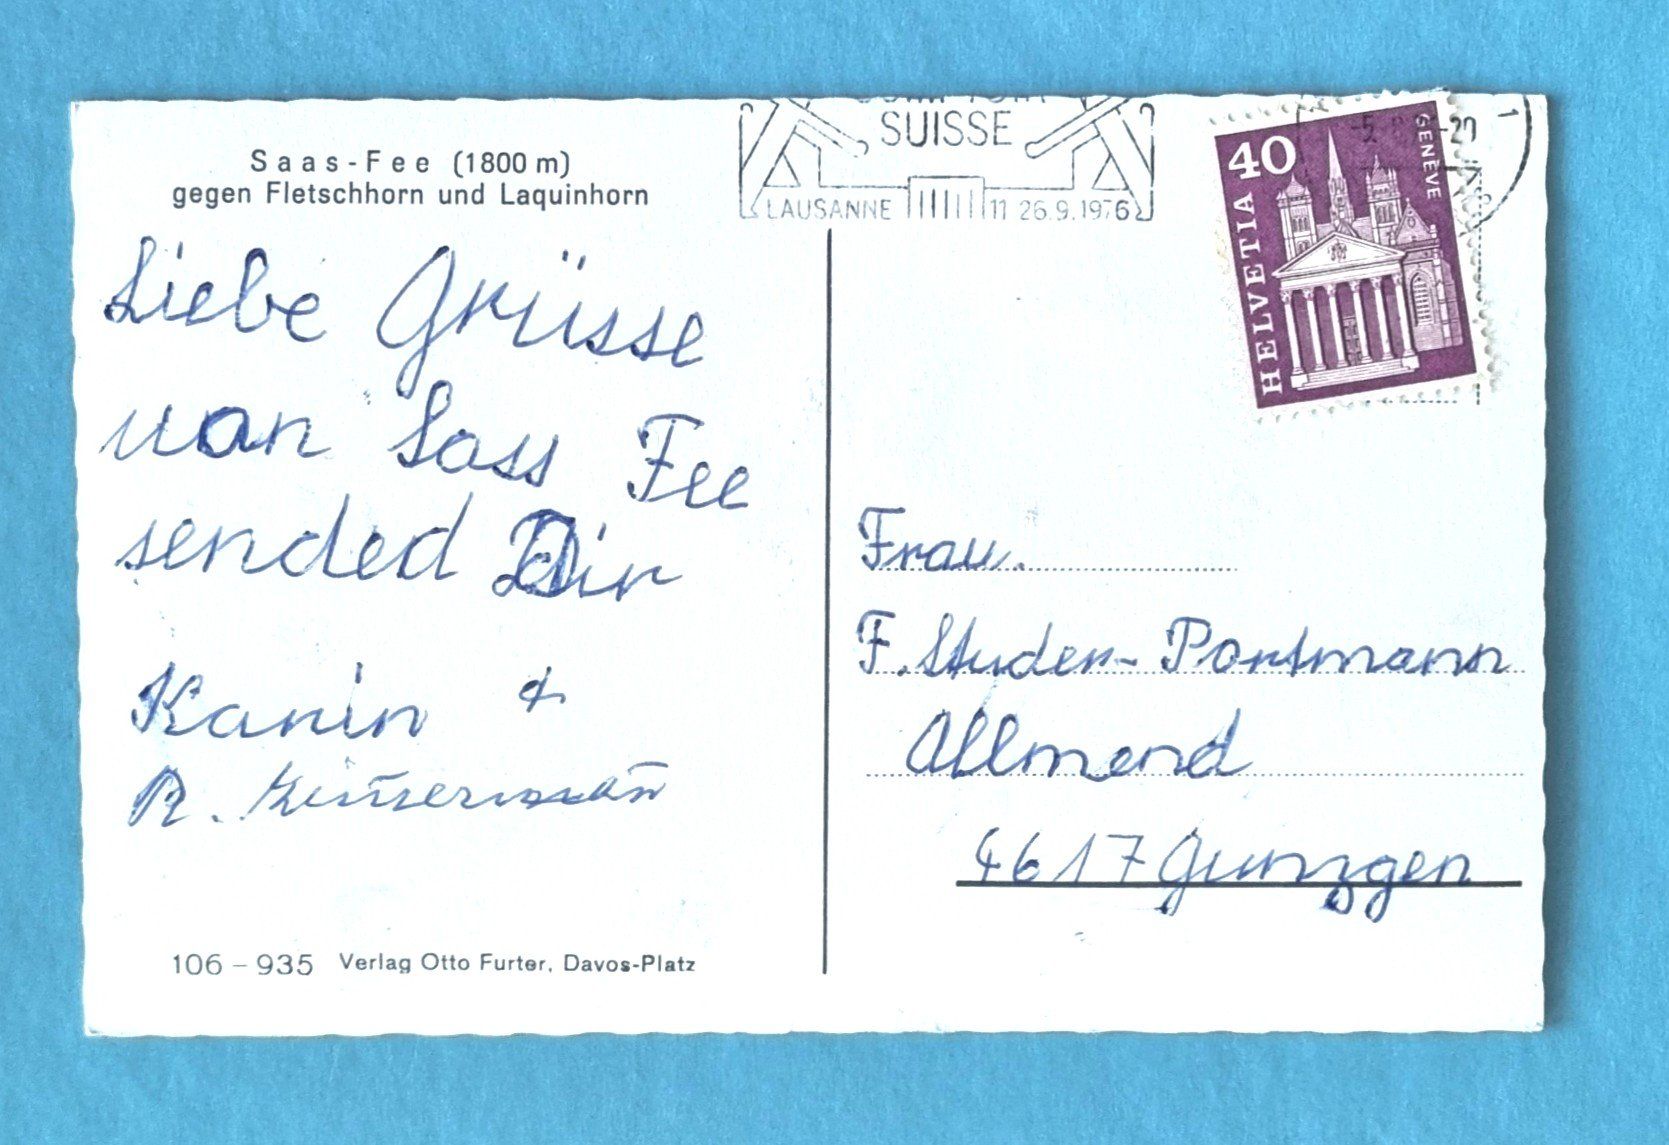 Saas-Fee (1800 m)
gegen Fletschhorn und Laquinhorn
Liebe Grüsse
von Sass Fee
sended Dir
Karin &
R.
106 - 935 Verlag Otto Furter, Davos-Platz
SUISSE
LAUSANNE 11 26.9.1976
40
HELVETIA
GENÈVE
Frau.
F. Studer-Portmann
Allmend
4617 Gunzgen